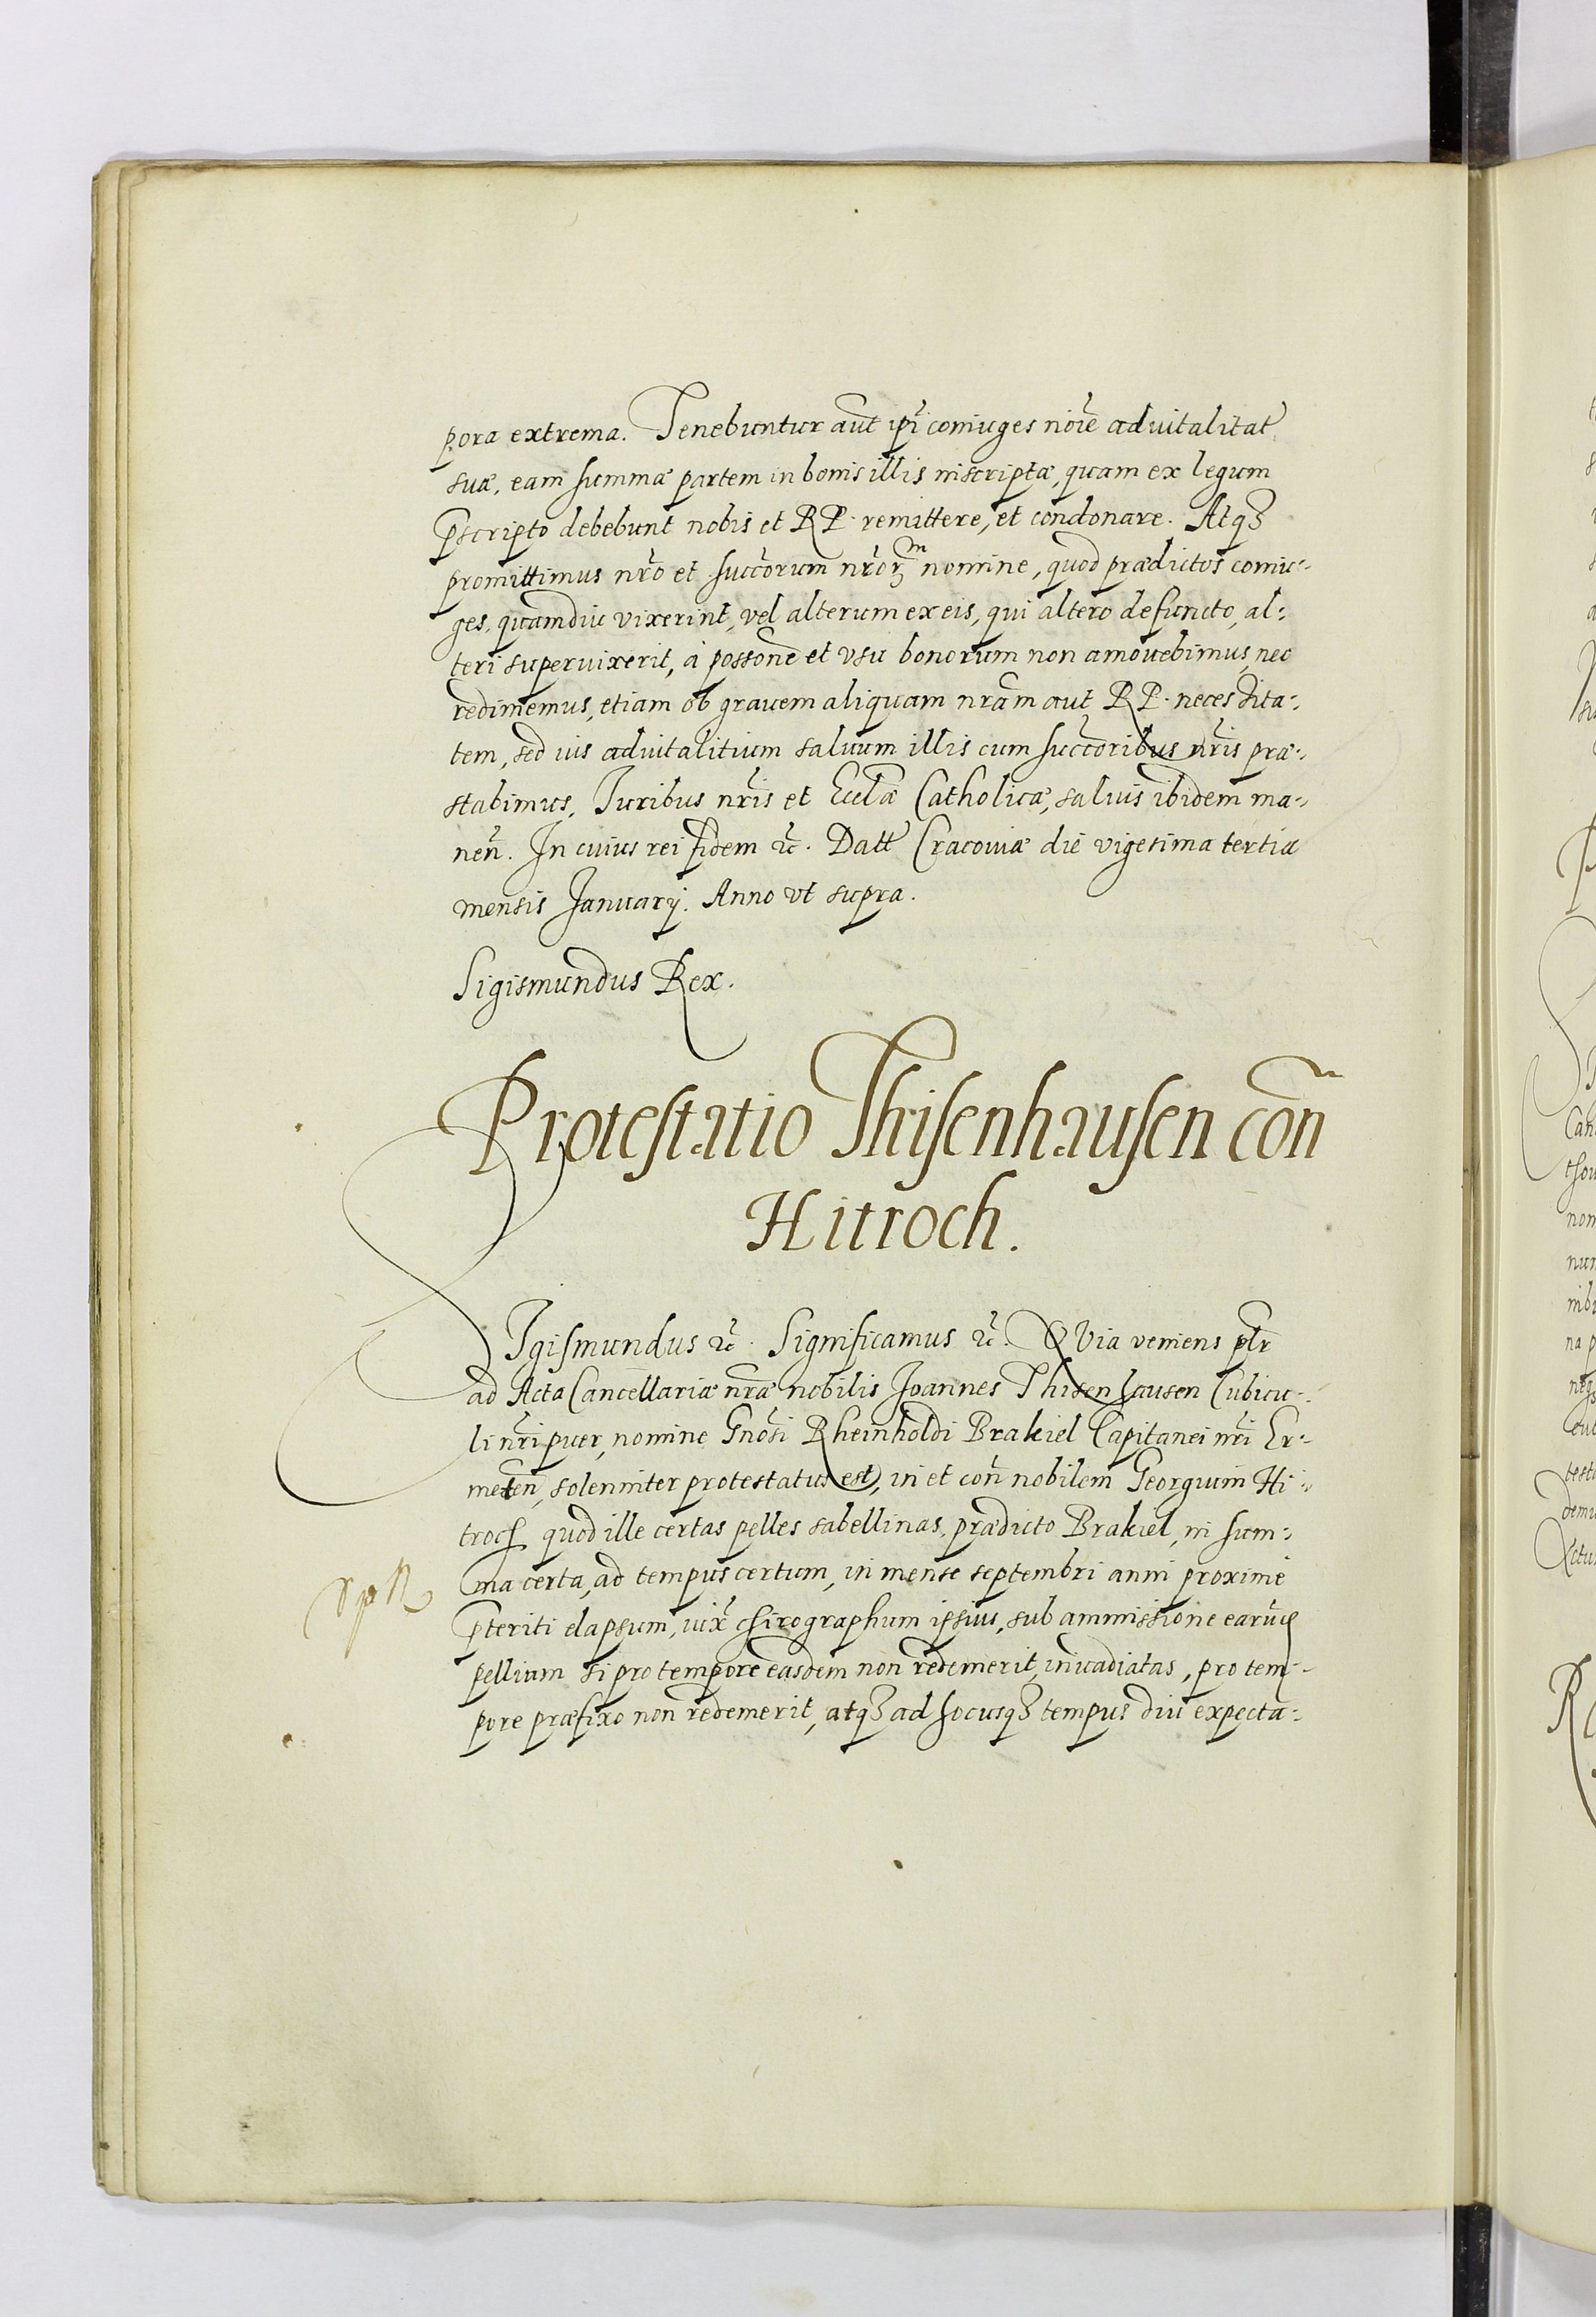 pora extrema. Tenebuntur aut̃ ip̃i coniuges nõie aduitalitat̃
suæ, eam summæ partem in bonis illis inscriptæ, quam ex legum
p̃scripto debebunt nobis et RP. remittere, et condonare. Atq₃
promittimus nr̃o et succ̃orum nr̃orꝫ nomine, quod prædictos coniu-
ges, quamdiu vixerint, vel alterum ex eis, qui altero defuncto, al-
teri superuixerit, à possone͂ et vsu bonorum non amouebimus, nec
redimemus, etiam ob grauem aliquam nr̃am aut RP. necessita-
tem, sed ius aduitalitium saluum illis cum succ̃oribus nr̃is præ-
stabimus, Iuribus nr̃is et Eccl̃æ Catholicæ, saluis ibidem ma-
neñ. In cuius rei fidem ꝛc̃. Datt̃ Cracouiæ die vigesima tertia
mensis Januarij. Anno vt supra.
Sigismundus Rex.
Protestatio Thisenhausen coñ
Hitroch.
SIgismundus ꝛc̃. Significamus ꝛc̃. QVia veniens pl̃r
ad Acta Cancellariæ nr̃æ nobilis Joannes Thisenhausen Cubicu-
li nr̃i puer, nomine Gnõsi Rheinholdi Brakiel Capitanei nr̃i Er-
meteñ, solenniter protestatus est, in et coñ nobilem Georgium Hi-
troch quod ille certas pelles sabellinas, prædicto Brakiel, in sum-
ma certa, ad tempus certum, in mense septembri anni proxime
p̃teriti elapsum, iux̃ chirographum ipsius, sub ammissione earuꝫ
pellium si pro tempore easdem non redemerit, inuadiatas, pro tem-
pore præfixo non redemerit, atq₃ ad hocusq₃ tempus diu expecta-